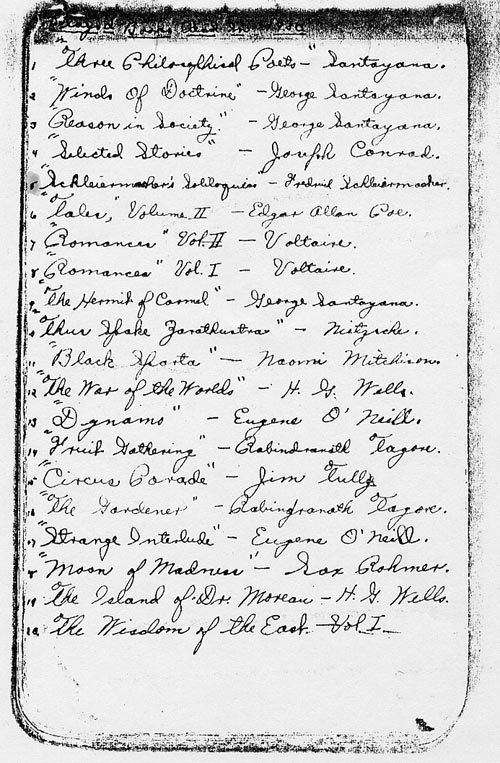 Books Read In
1 "Three Philosophical Poets – " Santayana.
2 "Winds Of Doctrine" – George Santayana.
3 "Reason in Society." – George Santayana.
4 "Selected Stories" – Joseph Conrad.
5 "Schleiermacher's Soliloquies" – Fredrick Schleiermacher.
6 "Tales," Volume II – Edgar Allan Poe.
7 "Romances" Vol. II – Voltaire.
8 "Romances" Vol. I – Voltaire.
9 "The Hermit of Carmel" – George Santayana.
10 "Thus Spake Zarathustra" – Nietzsche.
11 "Black Sparta" – Naomi Mitchison.
12 "The War of the Worlds" – H. G. Wells.
13 "Dynamo" – Eugene O'Neill.
14 "Fruit Gathering" – Rabindranath Tagore.
15 "Circus Parade" – Jim Tully
16 "The Gardener" – Rabingranath Tagore.
17 "Strange Interlude" – Eugene O'Neill.
18 "Moon of Madness" – Sax Rohmer.
19 The Island of Dr. Moreau – H. G. Wells.
20 The Wisdom of the East. Vol I